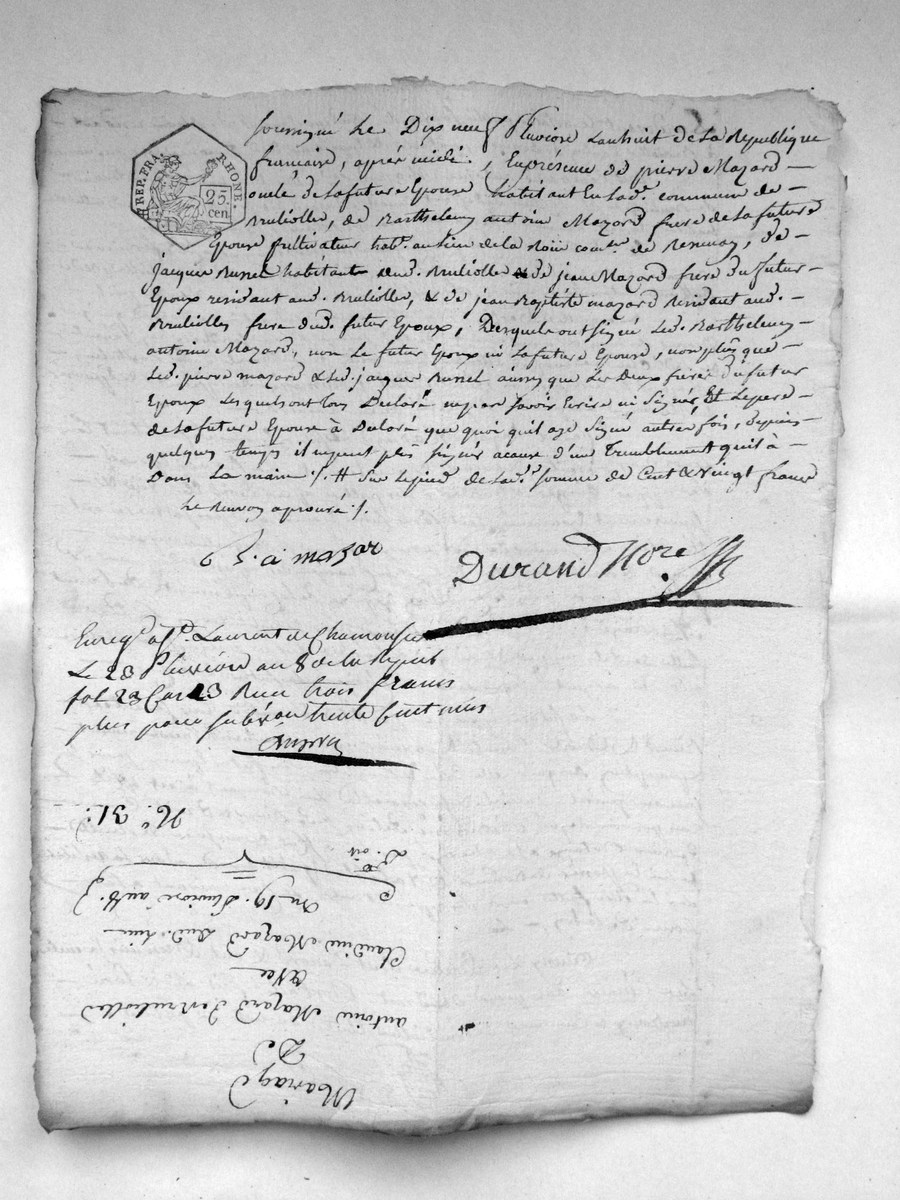 REP. FRA. RHONE.
25 cen.
soussigné Le Dix neuf Pluviose L'an huit de La Republique
française, après midi, En présence de pierre Mazard
oncle de Lafuture Epouse habitant En Lad.e commune de
Brulliolle, de Barthelemy antoine Mazard frere de Lafuture
Epouse Cultivateur hab.t au lieu de la
Jacques Russel habitant aud. Brulliolle & de jean Mazard frere du futur
Epoux residant aud. Brulliolle, & de jean Baptiste mazard Residant aud.
Brulliolles frere dud. futur Epoux, Desquels ont signé Led. Barthelemy
antoine Mazard, non Le futur Epoux ni Lafuture Epouse, non plus que
Led. pierre mazard & Led. jacques Russel aussy que Les Deux freres du futur
Epoux Lesquels ont tous Declaré ne pas savoir Ecrire ni signer, Et Lepere
de Lafuture Epouse à Declaré que quoi quil aye signé autre fois, depuis
quelques temps il ne peut plus signer acause d'un Tremblement quil à
Dans La main /. # Sur Lepied de Lad.e somme de Cent & vingt francs
Le Renvoy aprouvé /.
B. a mazar
Durand Nore
Enreg.é a S.t Laurent de Chamousset
Le 23 Pluviose an 8 de la Repub
fol 28 Car 23 Recu trois francs
plus pour subv.on trente cent.mes
N.o 31.
Du 19. Pluviose an 8.
Claudine Mazard
avec
antoine Mazard de Brulliolles
De
Mariage